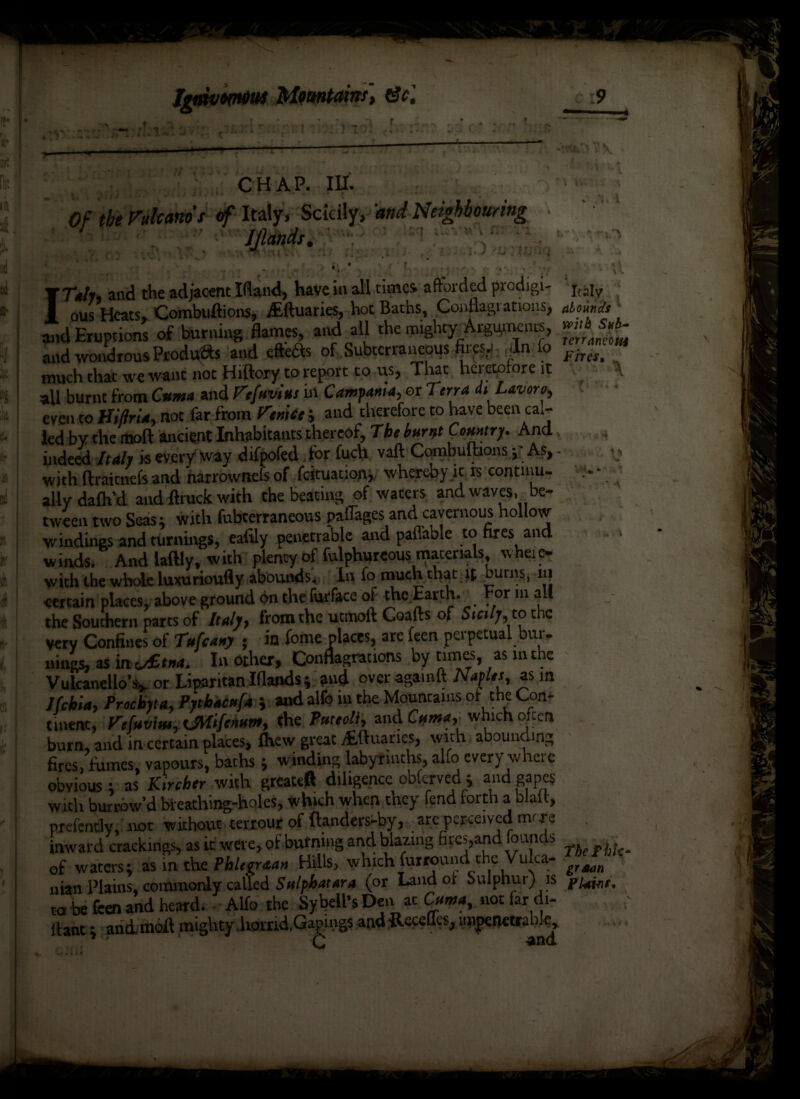 Ignivomous Mountains, &c.
9
CHAP. III.
Of the Vulcano's of Italy, Scicily, and Neighbouring
Iſlands.
ITaly, and the adjacent Iſland, have in all times afforded prodigi-
ous Heats, Combuſtions, Æſtuaries, hot Baths, Conflagrations,
and Eruptions of burning flames, and all the mighty Arguments,
and wondrous Products and effects of Subterraneous fires. In ſo
much that we want not Hiſtory to report to us, That heretofore it
all burnt from Cuma and Veſuvius in Campania, or Terra di Lavoro,
even to Hiſtria, not far from Venice; and therefore to have been cal-
led by the moſt ancient Inhabitants thereof, The burnt Country. And
indeed Italy is every way diſpoſed for ſuch vaſt Combuſtions; As,
with ſtraitneſs and narrowneſs of ſcituation, whereby it is continu-
ally daſh'd and ſtruck with the beating of waters and waves, be-
tween two Seas; with ſubterraneous paſſages and cavernous hollow
windings and turnings, eaſily penetrable and paſſable to fires and
winds. And laſtly, with plenty of ſulphureous materials, where-
with the whole luxuriouſly abounds. In ſo much that it burns, in
certain places, above ground on the ſurface of the Earth. For in all
the Southern parts of Italy, from the utmoſt Coaſts of Sicily, to the
very Confines of Tuſcany; in ſome places, are ſeen perpetual bur-
nings, as in Ætna. In others, Conflagrations by times, as in the
Vulcanello's, or Liparitan Iſlands; and over againſt Naples, as in
Iſchia, Prochyta, Pythacuſa; and alſo in the Mountains of the Con-
tinent, Veſuvius, Miſenum, the Puteoli, and Cuma, which often
burn, and in certain places, ſhew great Æſtuaries, with abounding
fires, fumes, vapours, baths; winding labyrinths, alſo every where
obvious; as Kircher with greateſt diligence obſerved; and gapes
with burrow'd breathing-holes, which when they ſend forth a blaſt,
preſently, not without terrour of ſtanders-by, are perceived more
inward crackings, as it were, of burning and blazing fires, and ſounds
of waters; as in the Phlegraan Hills, which ſurround the Vulca-
nian Plains, commonly called Sulphatara (or Land of Sulphur) is
to be ſeen and heard. Alſo the Sybell's Den at Cuma, not far di-
ſtant; and moſt mighty horrid, Gapings and Receſſes, impenetrable,
C and
Italy
abounds
with Sub-
terraneous
Fires.
The Phle-
graan
Plains.